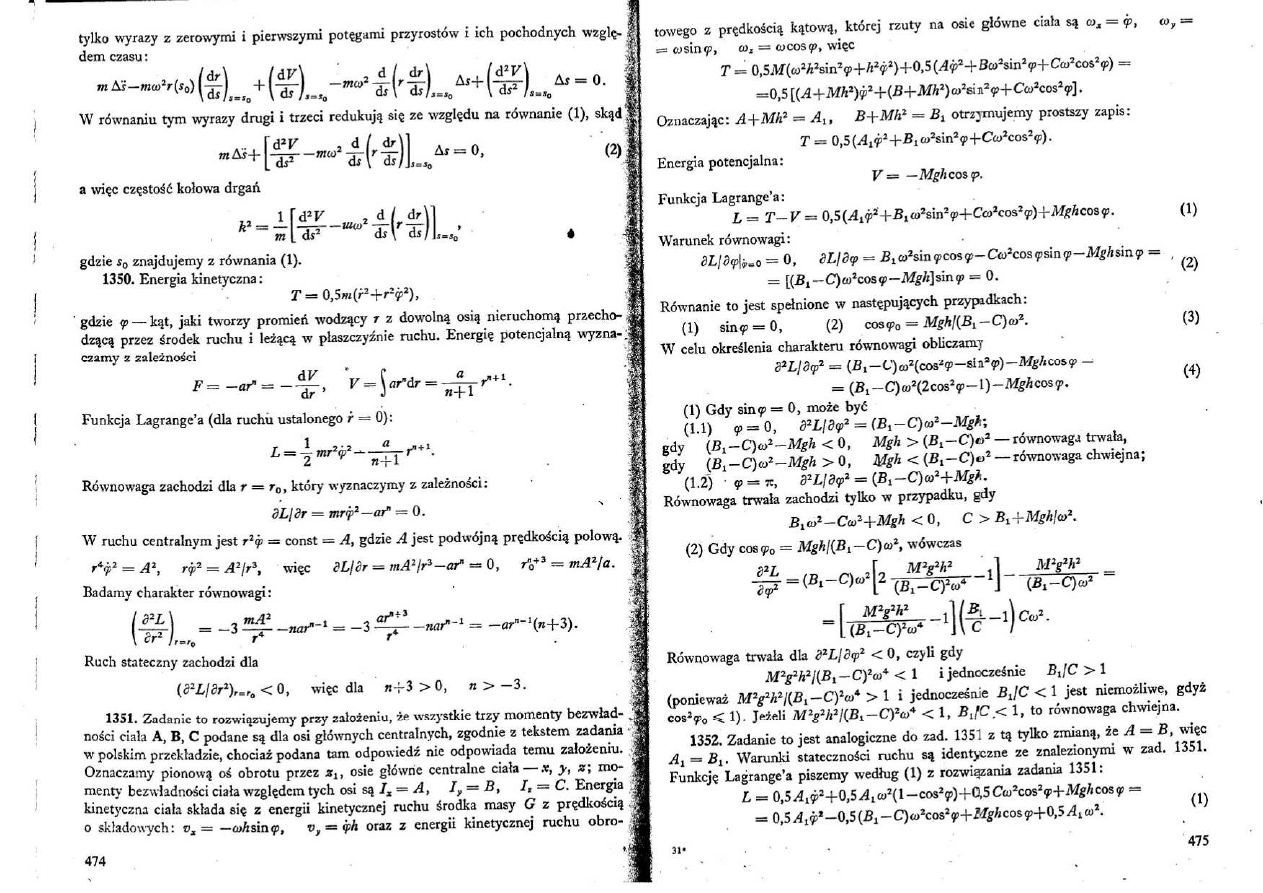 tylko wyrazy z zerowymi i pierwszymi potęgami przyrostów i ich pochodnych wzglę-
dem czasu:
m Δs̈−mω²r(s₀)(dr/ds)ₛ₌ₛ₀ +(dV/ds)ₛ₌ₛ₀ −mω² d/ds (r dr/ds)ₛ₌ₛ₀ Δs+(d²V/ds²)ₛ₌ₛ₀ Δs = 0.
W równaniu tym wyrazy drugi i trzeci redukują się ze względu na równanie (1), skąd
mΔs̈+[d²V/ds² −mω² d/ds (r dr/ds)]ₛ₌ₛ₀ Δs = 0, (2)
a więc częstość kołowa drgań
k² = 1/m [d²V/ds² −mω² d/ds (r dr/ds)]ₛ₌ₛ₀,
gdzie s₀ znajdujemy z równania (1).
1350. Energia kinetyczna:
T = 0,5m(ṙ²+r²φ̇²),
gdzie φ — kąt, jaki tworzy promień wodzący r z dowolną osią nieruchomą przecho-
dzącą przez środek ruchu i leżącą w płaszczyźnie ruchu. Energię potencjalną wyzna-
czamy z zależności
F = −arⁿ = − dV/dr, V = ∫ arⁿdr = a/(n+1) rⁿ⁺¹.
Funkcja Lagrange'a (dla ruchu ustalonego ṙ = 0):
L = 1/2 mr²φ̇² − a/(n+1) rⁿ⁺¹.
Równowaga zachodzi dla r = r₀, który wyznaczymy z zależności:
∂L/∂r = mrφ̇²−arⁿ = 0.
W ruchu centralnym jest r²φ̇ = const = A, gdzie A jest podwójną prędkością polową.
r⁴φ̇² = A², rφ̇² = A²/r³, więc ∂L/∂r = mA²/r³−arⁿ = 0, r₀ⁿ⁺³ = mA²/a.
Badamy charakter równowagi:
(∂²L/∂r²)ᵣ₌ᵣ₀ = −3 mA²/r⁴ −narⁿ⁻¹ = −3 arⁿ⁺³/r⁴ −narⁿ⁻¹ = −arⁿ⁻¹(n+3).
Ruch stateczny zachodzi dla
(∂²L/∂r²)ᵣ₌ᵣ₀ < 0, więc dla n+3 > 0, n > −3.
1351. Zadanie to rozwiązujemy przy założeniu, że wszystkie trzy momenty bezwład-
ności ciała A, B, C podane są dla osi głównych centralnych, zgodnie z tekstem zadania
w polskim przekładzie, chociaż podana tam odpowiedź nie odpowiada temu założeniu.
Oznaczamy pionową oś obrotu przez z₁, osie główne centralne ciała — x, y, z; mo-
menty bezwładności ciała względem tych osi są Iₓ = A, Iᵧ = B, I_z = C. Energia
kinetyczna ciała składa się z energii kinetycznej ruchu środka masy G z prędkością
o składowych: vₓ = −ωhsinφ, vᵧ = φ̇h oraz z energii kinetycznej ruchu obro-
474
towego z prędkością kątową, której rzuty na osie główne ciała są ωₓ = φ̇, ωᵧ =
= ωsinφ, ω_z = ωcosφ, więc
T = 0,5M(ω²h²sin²φ+h²φ̇²)+0,5(Aφ̇²+Bω²sin²φ+Cω²cos²φ) =
=0,5[(A+Mh²)φ̇²+(B+Mh²)ω²sin²φ+Cω²cos²φ].
Oznaczając: A+Mh² = A₁, B+Mh² = B₁ otrzymujemy prostszy zapis:
T = 0,5(A₁φ̇²+B₁ω²sin²φ+Cω²cos²φ).
Energia potencjalna:
V = −Mghcosφ.
Funkcja Lagrange'a:
L = T−V = 0,5(A₁φ̇²+B₁ω²sin²φ+Cω²cos²φ)+Mghcosφ. (1)
Warunek równowagi:
∂L/∂φ|φ̇₌₀ = 0, ∂L/∂φ = B₁ω²sinφcosφ−Cω²cosφsinφ−Mghsinφ =
= [(B₁−C)ω²cosφ−Mgh]sinφ = 0. (2)
Równanie to jest spełnione w następujących przypadkach:
(1) sinφ = 0, (2) cosφ₀ = Mgh/(B₁−C)ω². (3)
W celu określenia charakteru równowagi obliczamy
∂²L/∂φ² = (B₁−C)ω²(cos²φ−sin²φ)−Mghcosφ −
= (B₁−C)ω²(2cos²φ−1)−Mghcosφ. (4)
(1) Gdy sinφ = 0, może być
(1.1) φ = 0, ∂²L/∂φ² = (B₁−C)ω²−Mgh;
gdy (B₁−C)ω²−Mgh < 0, Mgh > (B₁−C)ω² — równowaga trwała,
gdy (B₁−C)ω²−Mgh > 0, Mgh < (B₁−C)ω² — równowaga chwiejna;
(1.2) φ = π, ∂²L/∂φ² = (B₁−C)ω²+Mgh.
Równowaga trwała zachodzi tylko w przypadku, gdy
B₁ω²−Cω²+Mgh < 0, C > B₁+Mgh/ω².
(2) Gdy cosφ₀ = Mgh/(B₁−C)ω², wówczas
∂²L/∂φ² = (B₁−C)ω²[2 M²g²h²/(B₁−C)²ω⁴ −1] − M²g²h²/(B₁−C)ω² =
= [M²g²h²/(B₁−C)²ω⁴ −1](B₁/C −1)Cω².
Równowaga trwała dla ∂²L/∂φ² < 0, czyli gdy
M²g²h²/(B₁−C)²ω⁴ < 1 i jednocześnie B₁/C > 1
(ponieważ M²g²h²/(B₁−C)²ω⁴ > 1 i jednocześnie B₁/C < 1 jest niemożliwe, gdyż
cos²φ₀ ⩽ 1). Jeżeli M²g²h²/(B₁−C)²ω⁴ < 1, B₁/C < 1, to równowaga chwiejna.
1352. Zadanie to jest analogiczne do zad. 1351 z tą tylko zmianą, że A = B, więc
A₁ = B₁. Warunki stateczności ruchu są identyczne ze znalezionymi w zad. 1351.
Funkcję Lagrange'a piszemy według (1) z rozwiązania zadania 1351:
L = 0,5A₁φ̇²+0,5A₁ω²(1−cos²φ)+0,5Cω²cos²φ+Mghcosφ =
= 0,5A₁φ̇²−0,5(B₁−C)ω²cos²φ+Mghcosφ+0,5A₁ω². (1)
31*
475